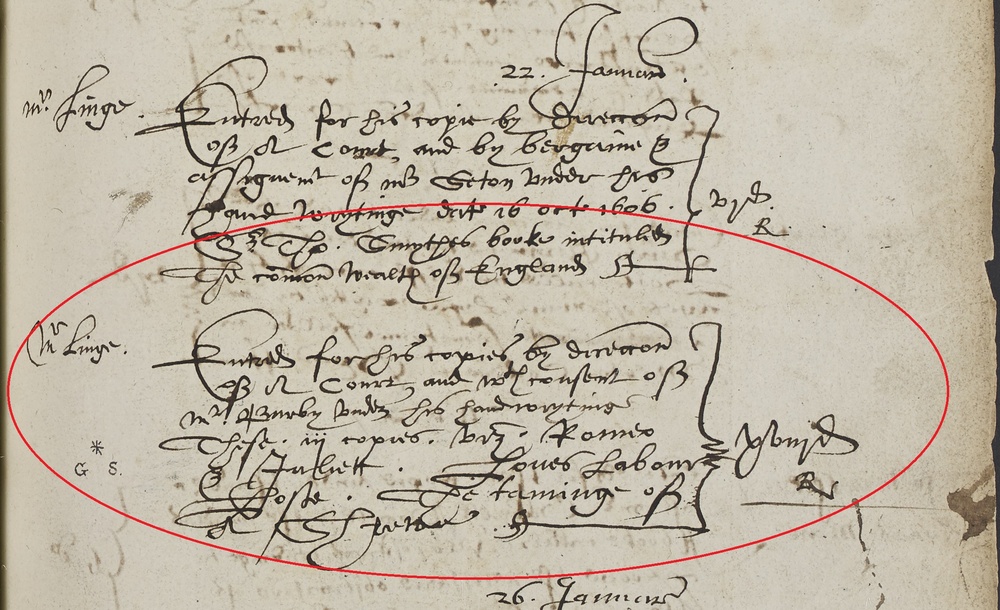 22. Januarij.
mr. Linge.
Entred for his copie by direccon
of A Court, and by bargaine &
assignemt of mr Seton vnder his
hand wrytinge date 16 octr 1606.
Sr Tho. Smythes booke intituled
The comon wealth of England
vjd.
R
mr Linge.
Entred for his copies by direccon
of A Court, and wth consent of
mr. Burby vnder his handwrytinge
These. iij copies. viz. Romeo
& Juliett. Loues Labour
Loste. The taminge of
A Shrewe
xviijd
R
*
G S.
26. Januarij